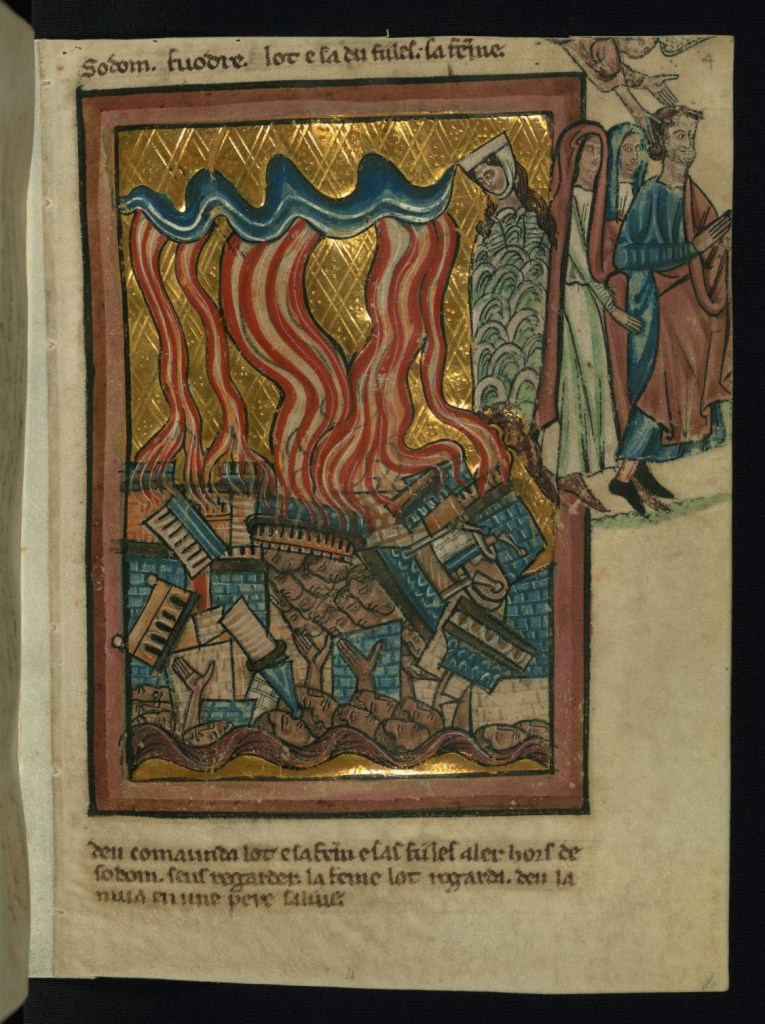 Sodom. fuodre. lot e sa du fules. la feme.
4
deu comaunda lot e la feim e las fules aler hors de
sodom. seus regarder. la feme lot regarda. deu la
mua en une pere salius.